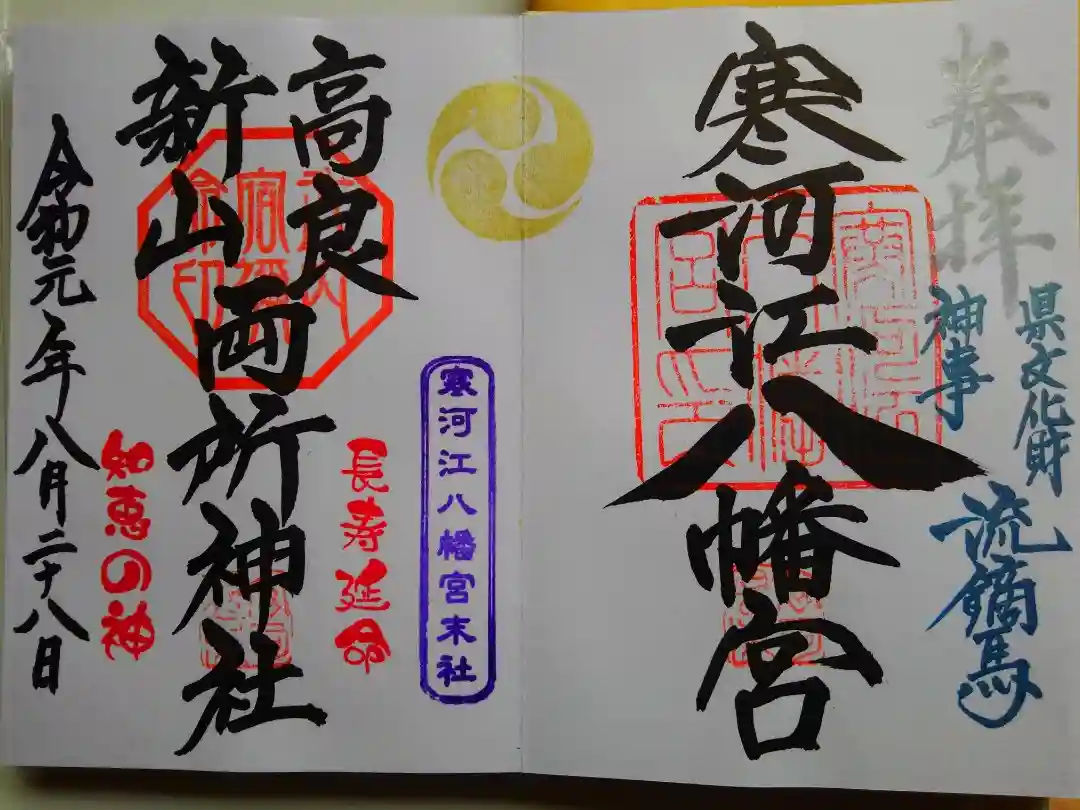 奉拝
県文化財
神事
流鏑馬
寒河江八幡宮
寒河江八幡宮末社
長寿延命
高良
新山
両所神社
知恵の神
令和元年八月二十八日